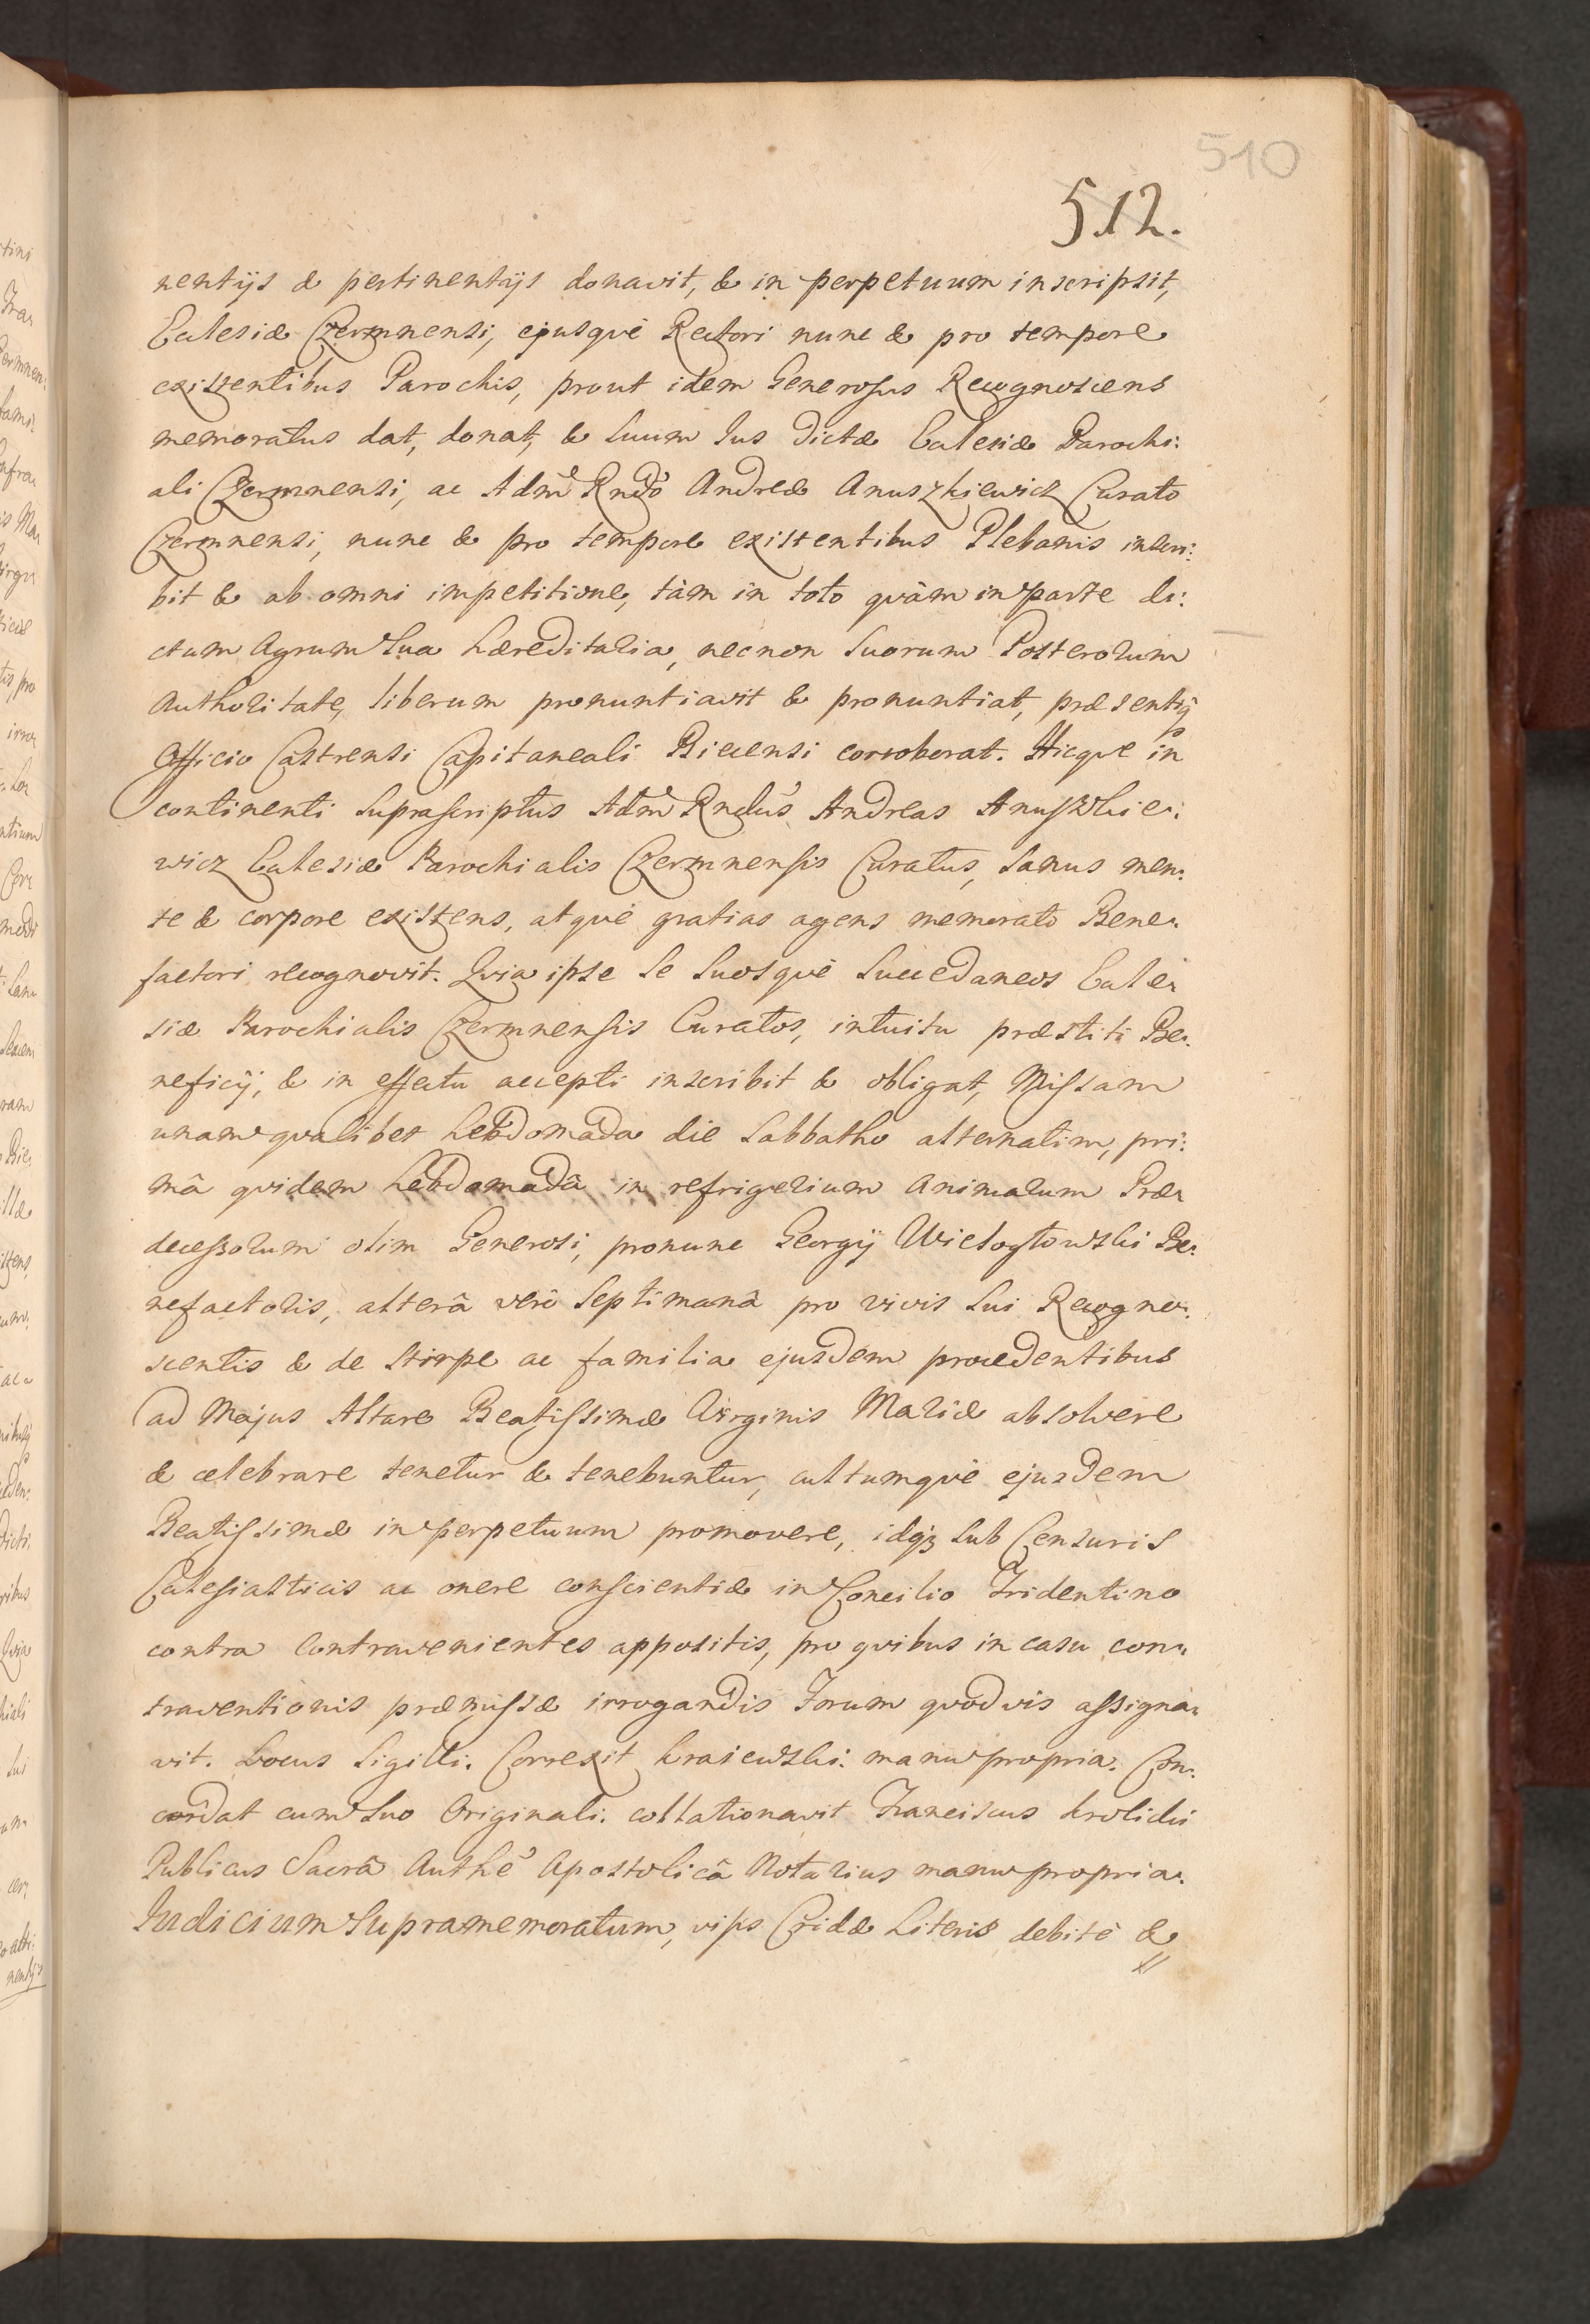 510
512.
nentijs & pertinentijs donavit, & in perpetuum inscripsit,
Ecclesiæ Czermnensi, ejusquè Rectori nunc & pro tempore
existentibus Parochis, prout idem Generosus Recognoscens
memoratus dat, donat, & suum Jus dictæ Ecclesiæ Parochi:
ali Czermnensi, ac Admè Rndò Andreæ Anuszkiewicz Curato
Czermnensi, nunc & pro tempore existentibus Plebanis inscri:
bit & ab omni impetitione, tàm in toto quàm in parte di:
ctum Agrum sua hæreditaria, necnon suorum Posterorum
Authoritate, liberum pronuntiavit & pronuntiat, præsentiq
Officio Castrensi Capitaneali Biecensi corroborat. Hicque in
continenti suprascriptus Admè Rndus Andreas Anuszkie:
wicz Ecclesiæ Parochialis Czermnensis Curatus, sanus men:
te & corpore existens, atquè gratias agens memorato Bene:
factori recognovit. Quia ipse se suosquè succedaneos Eccle:
siæ Parochialis Czermnensis Curatos, intuitu præstiti Be:
neficij, & in effectu accepti inscribit & obligat, Missam
unam qualibet hebdomada die Sabbatho alternatim, pri:
mâ quidem hebdomadâ in refrigerium Animarum Præ:
decessorum olim Generosi, pronunc Georgij Wielogłowski Be:
nefactoris, alterâ verò septimanâ pro vivis sui Recogno:
scentis & de stirpe ac familia ejusdem procedentibus
ad Majus Altare Beatissimæ Virginis Mariæ absolvere
& celebrare tenetur & tenebuntur, cultumquè ejusdem
Beatissimæ in perpetuum promovere, idq3 sub Censuris
Ecclesiasticis ac onere conscientiæ in Concilio Tridentino
contra Contravenientes appositis, pro quibus in casu con:
traventionis præmissæ irrogandis Forum quodvis assigna:
vit. Locus Sigilli. Correxit Kraiewski. manu propria. Con:
cordat cum suo Originali. collationavit Franciscus Krolicki
Publicus Sacrâ Authè Apostolicâ Notarius manu propria.
Judicium supramemoratum, visis Cridæ Literis debitè &